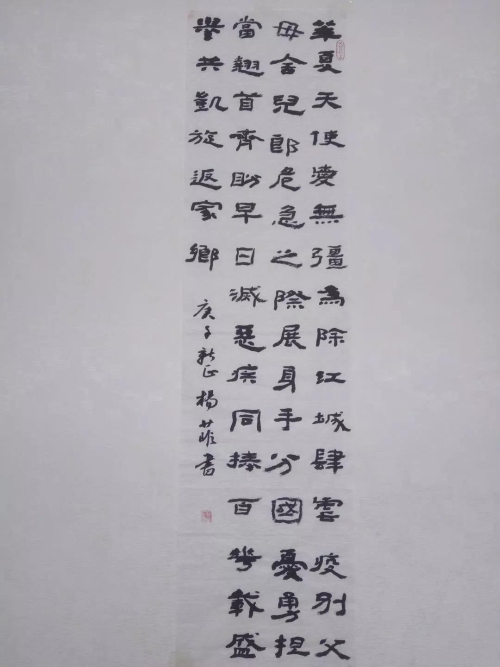 華夏天使愛無彊為除江城肆虐疫别父
母舍兒郎危急之際展身手分國憂勇担
當翹首齊盼早日滅惡疾同捧百花載盛
譽共凱旋返家鄉
庚子新正楊菲書